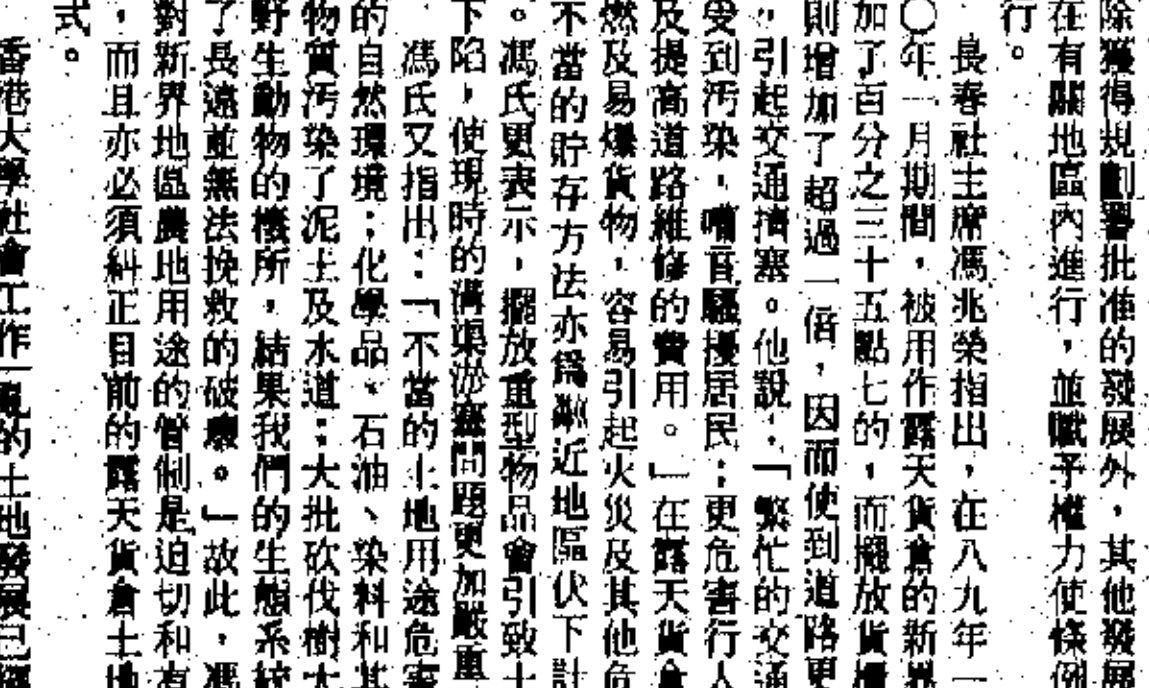 除獲得規劃署批准的發展外，其他發展
在有關地區內進行，並賦予權力使條例
行。
長春社主席馮兆榮指出，在八九年一
○年一月期間，被用作露天貨倉的新界
加了百分之三十五點七的，而擺放貨櫃
則增加了超過一倍，因而使到道路更
，引起交通擠塞。他說：「繁忙的交通
受到污染，嘈音騷擾居民；更危害行人
及提高道路維修的費用。」在露天貨倉
燃及易爆貨物，容易引起火災及其他危
不當的貯存方法亦為鄰近地區伏下計
。馮氏更表示，擺放重型物品會引致土
下陷，使現時的溝渠淤塞問題更加嚴重
馮氏又指出：「不當的土地用途危害
的自然環境；化學品、石油、染料和其
物質污染了泥土及水道；大批砍伐樹木
野生動物的棲所，結果我們的生態系統
了長遠並無法挽救的破壞。」故此，馮
對新界地區農地用途的管制是迫切和有
，而且亦必須糾正目前的露天貨倉土地
式。
香港大學社會工作一覽的土地發展已經